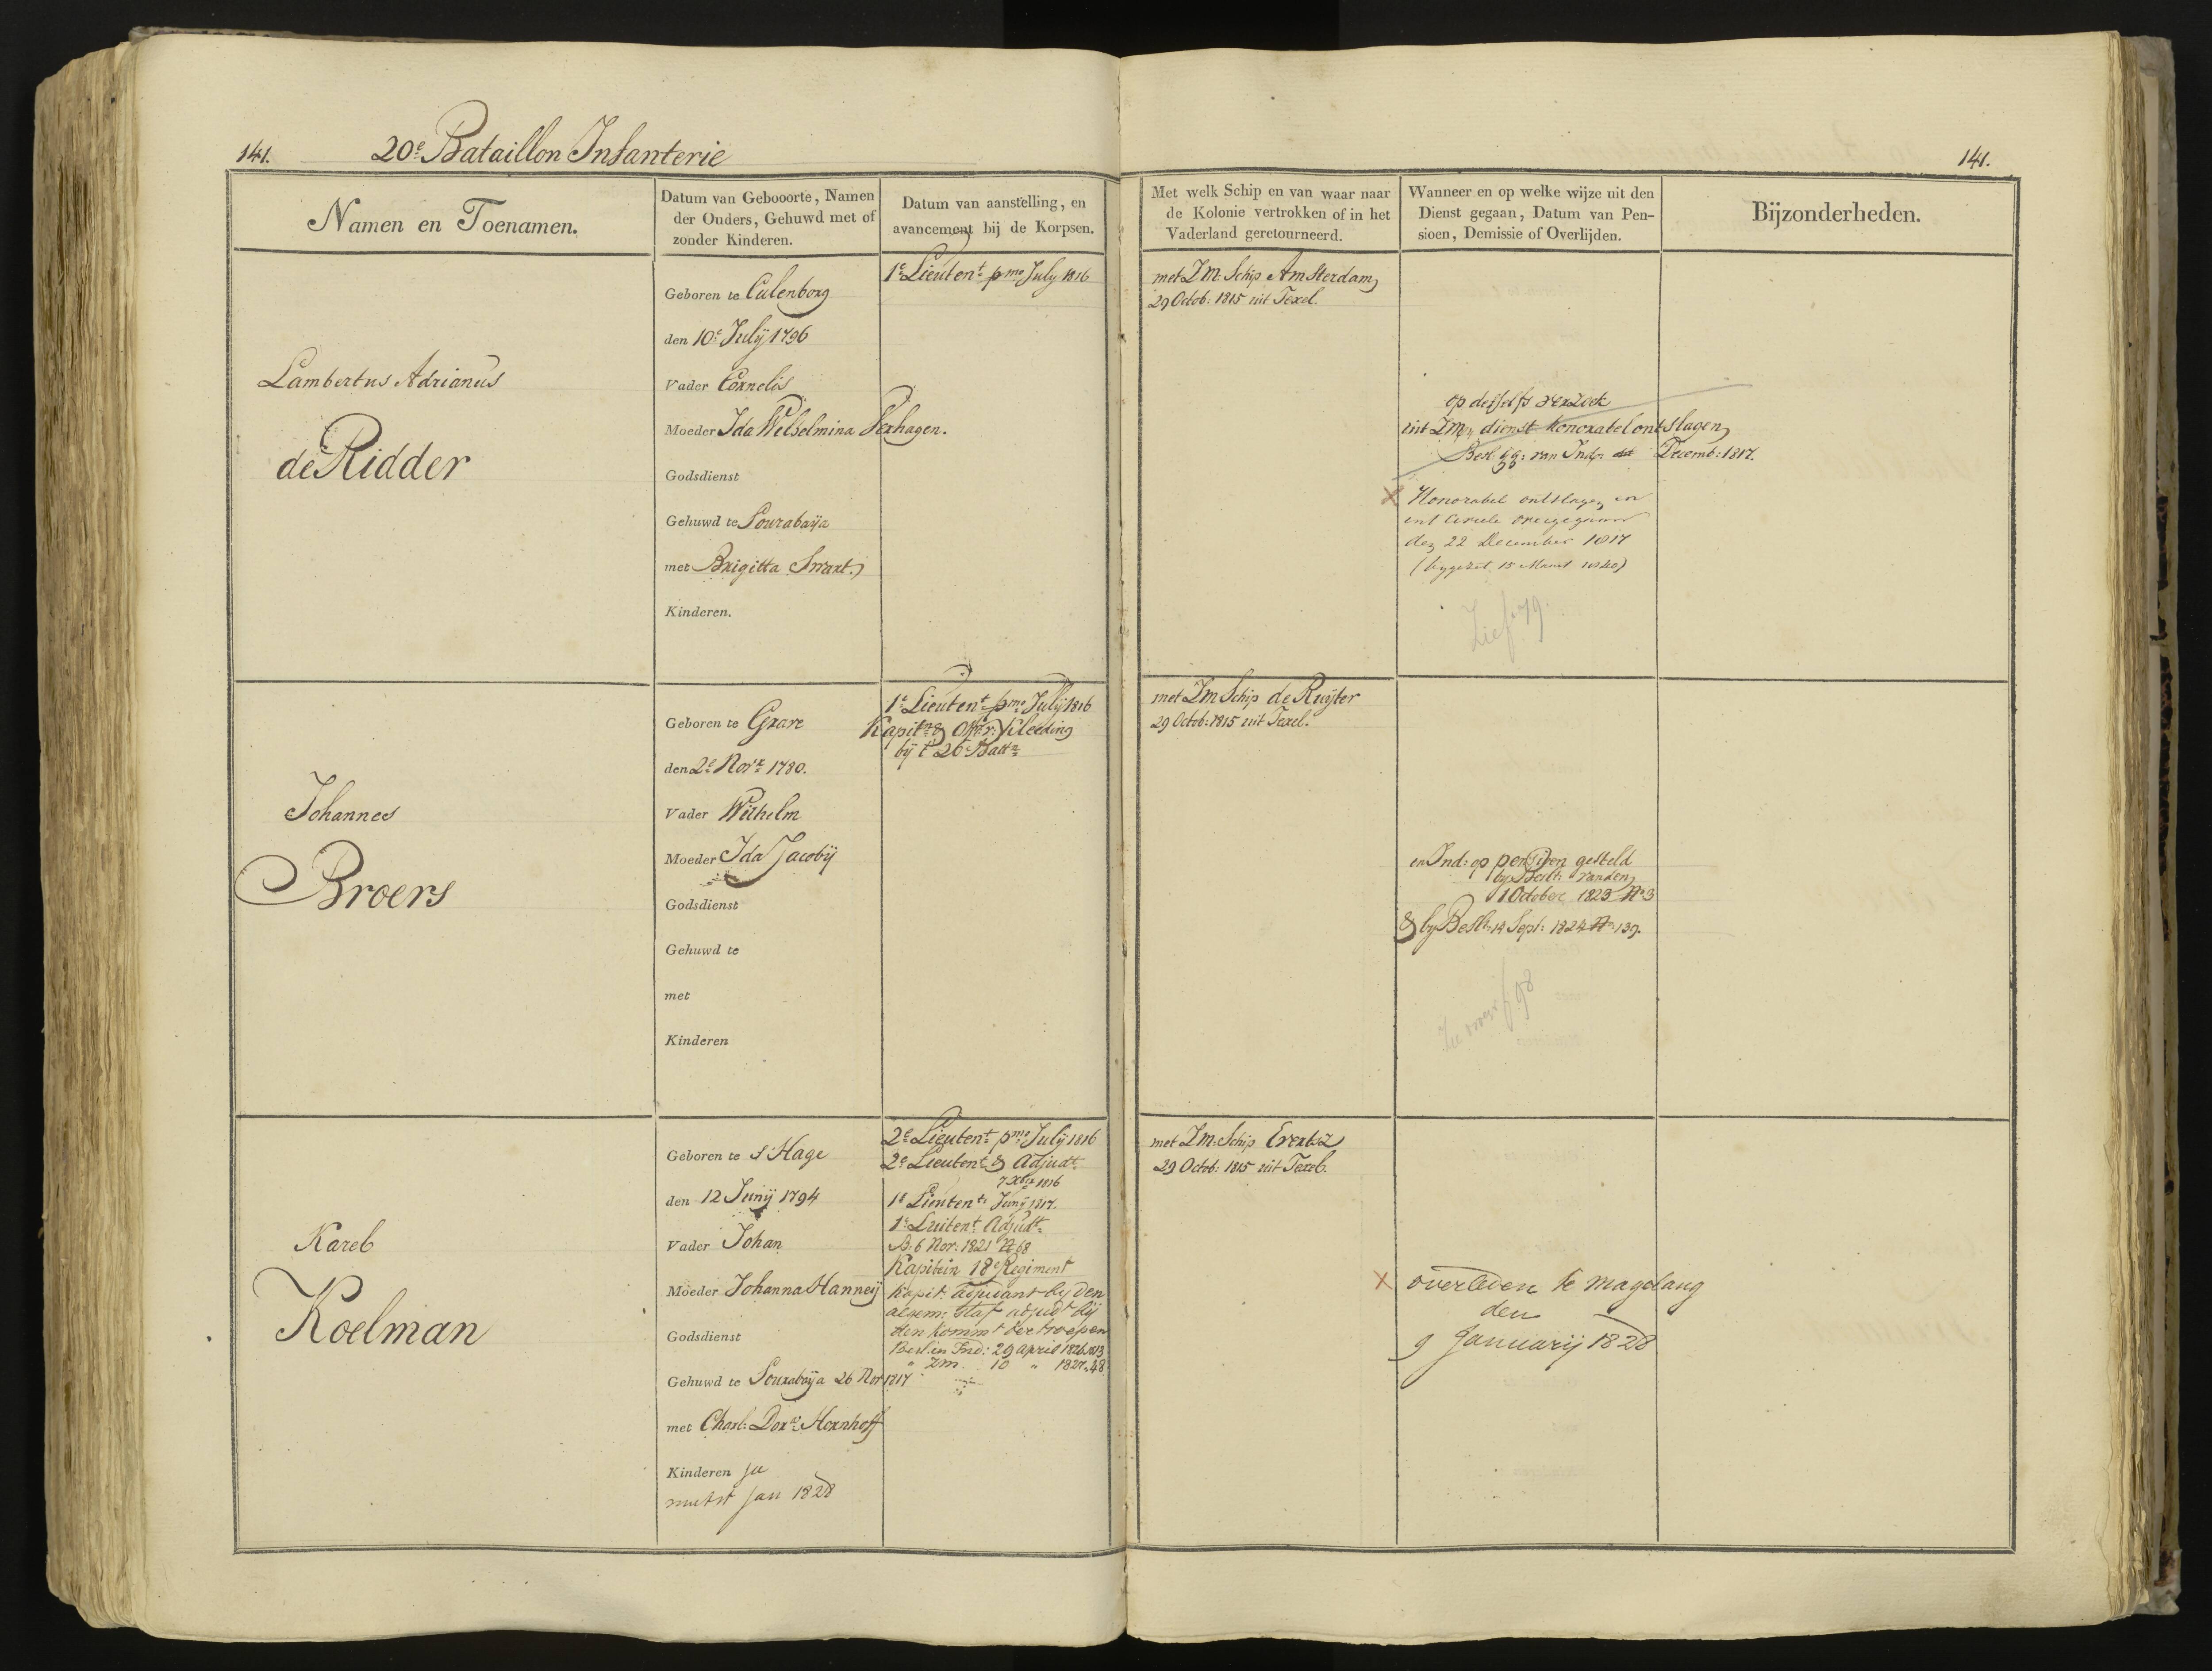 141.
20e Bataillon Infanterie
141.
Namen en Toenamen.
Datum van Gebooorte, Namen
der Ouders, Gehuwd met of
zonder Kinderen.
Datum van aanstelling, en
avancement bij de Korpsen.
Met welk Schip en van waar naar
de Kolonie vertrokken of in het
Vaderland geretourneerd.
Wanneer en op welke wijze uit den
Dienst gegaan, Datum van Pen-
sioen, Demissie of Overlijden.
Bijzonderheden.
Lambertus Adrianus
de Ridder
Geboren te Culenborg
den 10e July 1796
Vader Cornelis
Moeder Ida Wilhelmina Verhagen.
Godsdienst
Gehuwd te Sourabaÿa
met Brigitta Swart.
Kinderen.
1e Lieutent pmo July 1816
met Zm: Schip Amsterdam
29 Octob: 1815 uit Texel.
op desselfs verzoek
uit Zm dienst honorabel ontslagen
Besl: gg: van Ind: Decemb: 1817.
Honorabel ontslagen en
den 22 December 1817
(bygezet 15 Maart 1840)
Zie f 79.
Johannes
Broers
Geboren te Grave
den 2e Novr 1780.
Vader Wilhelm
Moeder Ida Jacobÿ
Godsdienst
Gehuwd te
met
Kinderen
1e Lieutent pmo Julÿ 1816
Kapitn & Offr: Kleeding
bÿ t 20 Battn
met Zm Schip de Ruÿter
29 Octob: 1815 uit Texel.
in Ind: op pensioen gesteld
by Beslt: van den
1 October 1823 No 3
& by Beslt: 14 Sept: 1824 No 139.
f 98
Karel
Koelman
Geboren te s'Hage
den 12 Junÿ 1794
Vader Johan
Moeder Johanna Hanneÿ
Godsdienst
Gehuwd te Sourabaÿa 26 Nov 1817
met Charl: Dora Hornhoff
Kinderen ja
Jan 1828
2e Lieutent pmo Julÿ 1816
2e Lieutent & Adjudt
7 Xber 1816
1e Lieutent: Junÿ 1817.
1e Luitent Adjudt
B. 6 Nov: 1821 No 68
Kapitein 18e Regiment
Kapit: adjudant by den
algem: Staf adjudt bÿ
den kommt der troepen
Besl. in Ind: 29 April 1826 No 13
" Zm. 10 " 1827 " 48
met Zm: Schip Evertsz
29 Octob: 1815 uit Texel.
overleden te Magelang
den
9 Januarij 1828